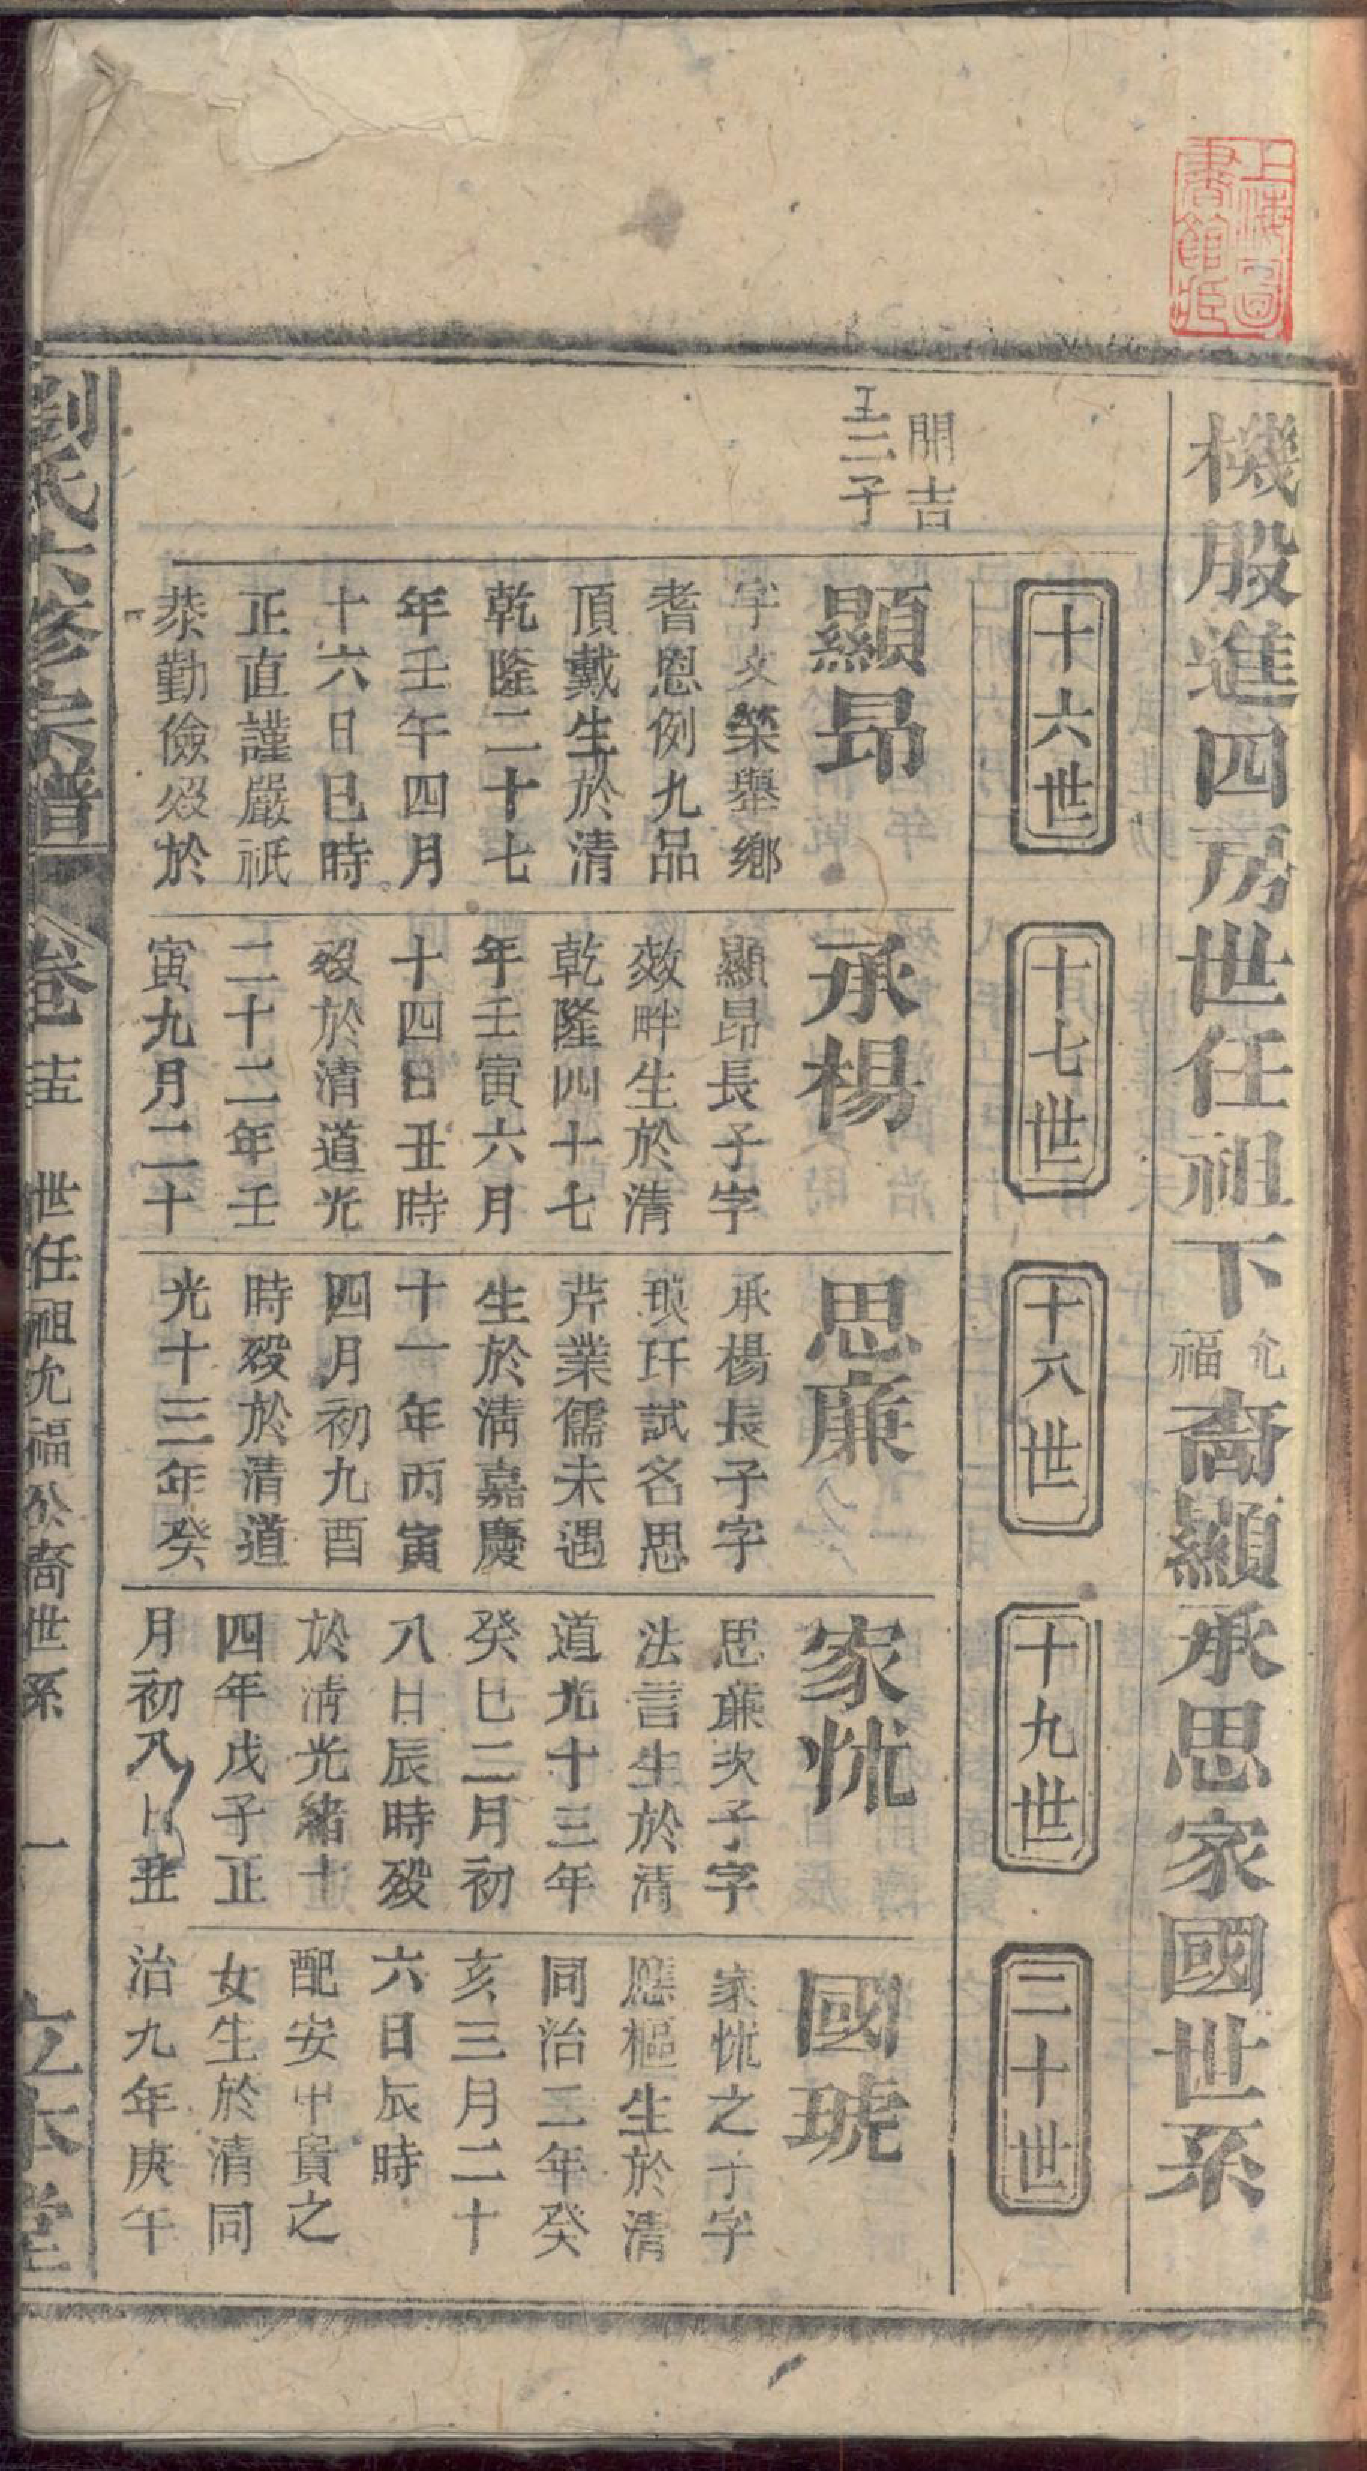 上海圖
書館藏
機股進四房世任祖下允福裔顯承思家國世系
十六世
十七世
十八世
十九世
二十世
開吉
三子
顯昂
字文榮舉鄉
耆恩例九品
頂戴生於清
乾隆二十七
年壬午四月
十六日巳時
正直謹嚴祇
恭勤儉歿於
承楊
顯昂長子字
效畔生於清
乾隆四十七
年壬寅六月
十四日丑時
歿於清道光
二十二年壬
寅九月二十
思廉
承楊長子字
琅玕試名思
芹業儒未遇
生於清嘉慶
十一年丙寅
四月初九酉
時歿於清道
光十三年癸
家恍
思廉次子字
法言生於清
道光十三年
癸巳二月初
八日辰時歿
於清光緒十
四年戊子正
月初八日丑
國琥
家恍之子字
應樞生於清
同治二年癸
亥三月二十
六日辰時
配安甲貴之
女生於清同
治九年庚午
劉氏六修宗譜
卷十五 世任祖允福公裔世系 一 立本堂